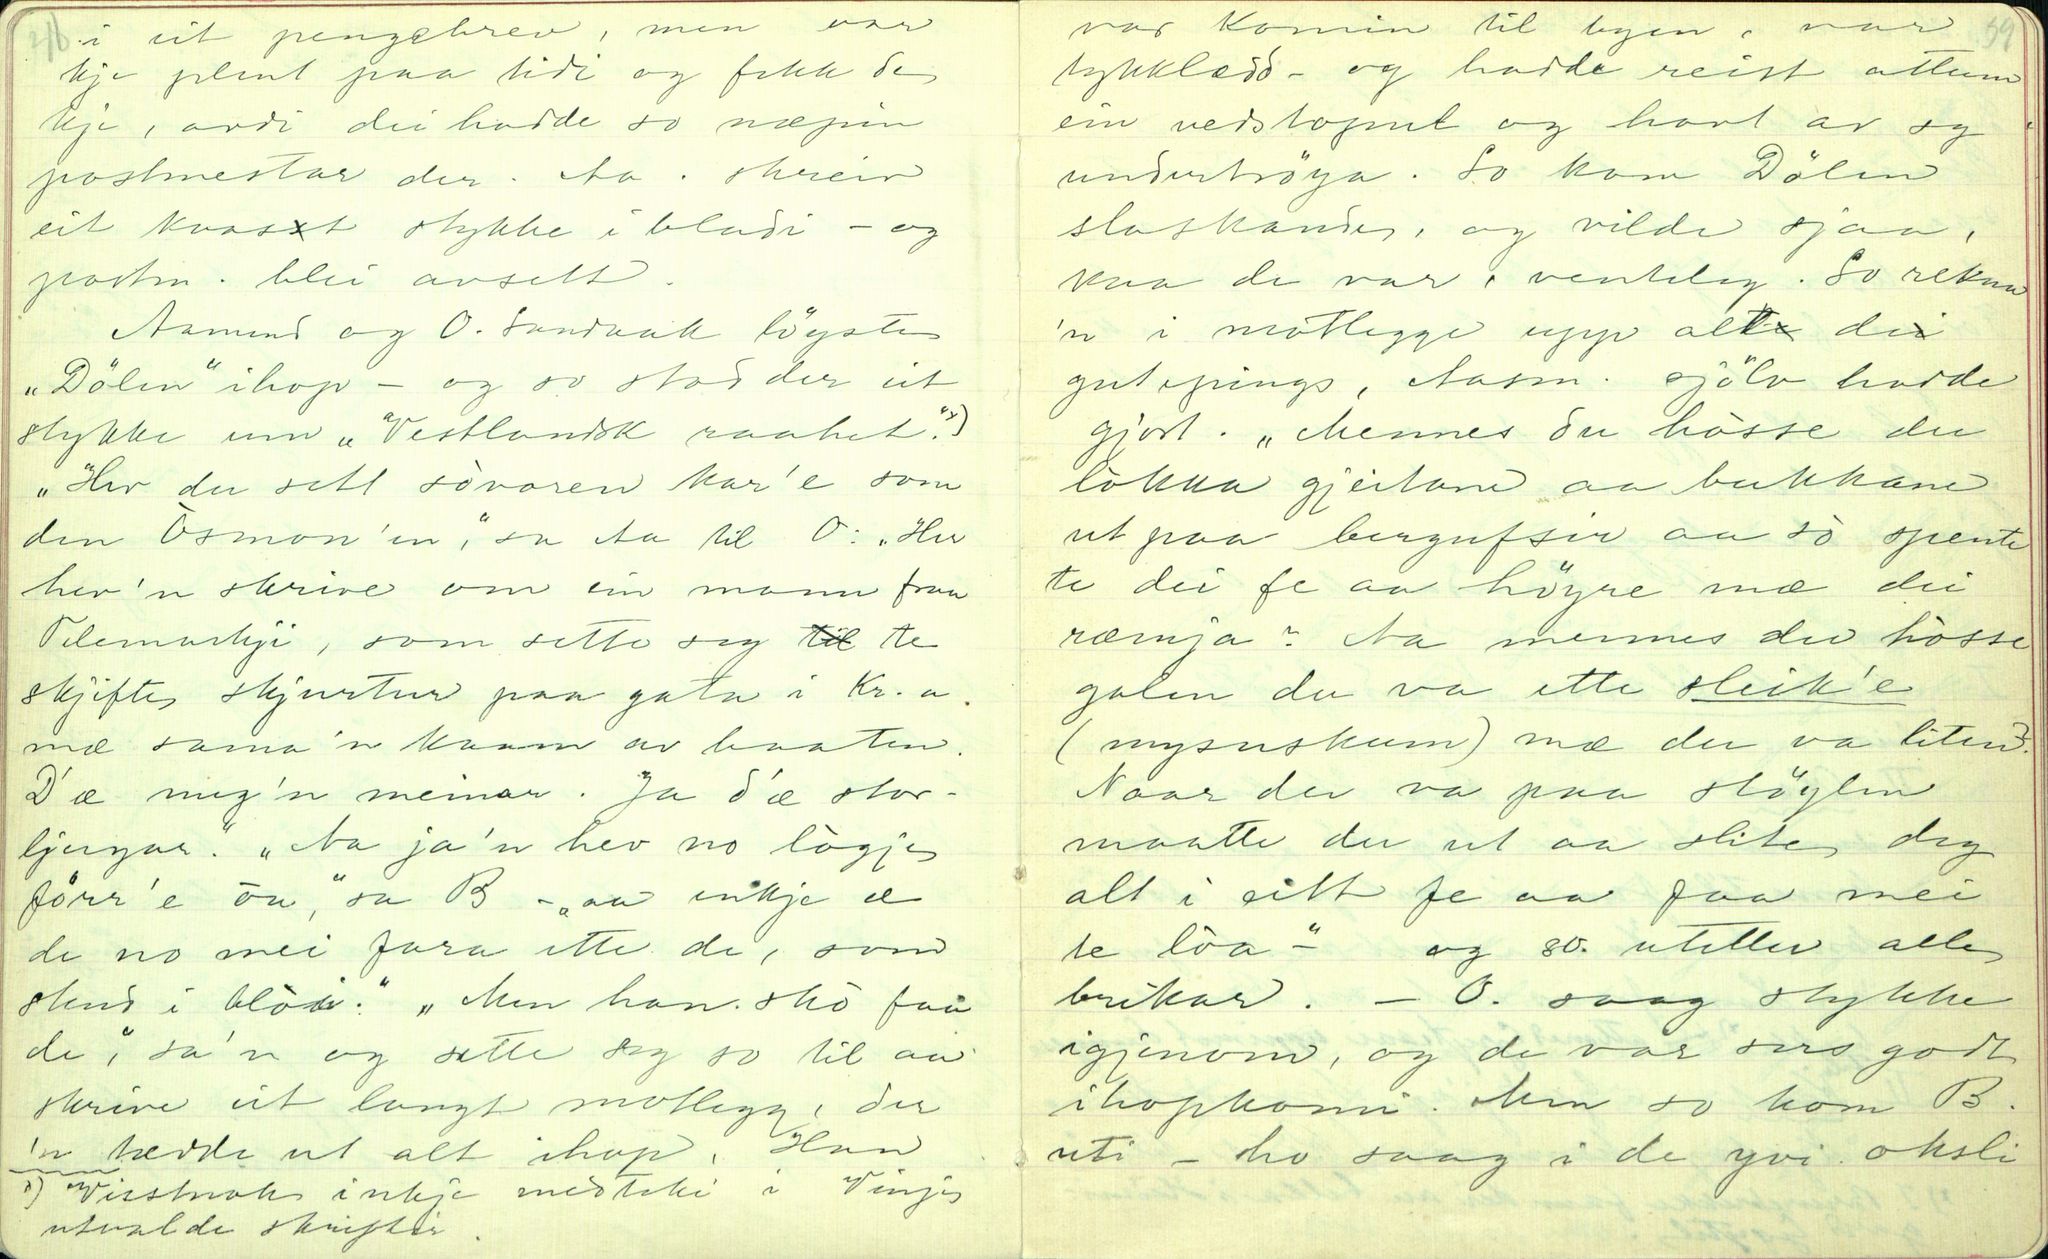 i eit pengebrev, men var
kje plent paa tidi og fekk de
kje, avdi dei hadde so næpin
postmestar der. Aa. skreiv
eit kvast stykke i bladi - og
postm. blei avsett.
Aamund og O. Sandaak löyste
„Dölen" ihop - og so stod der eit
stykke um „Vestlandsk raahet." x)
„Hev du sett såvoren kar'e som
den Òsmon'en," sa Aa til O: „Her
hev'n skrive om ein mann fraa
Telemarkji, som sette seg te
skjifte skjurtur paa gata i Kr.a
mæ sama'n kaam av baaten.
D'æ meg'n meinar. Ja d'æ stor-
ljugar." „Aa ja'n hev no lògje
förr'e òu," sa B - „aa inkje æ
de no mei fara ette de, som
stend i blòi." „Men han skò faa
de," sa'n og sette seg so til aa
skrive eit langt motlegg, der
'n tædde ut alt ihop. Han
x) Visstnok inkje medteki i Vinjes
utvalde skrifter.
59
var komin til byen, var
tykklædd - og hadde reist attum
ein vedstapul og havt av seg
undertröya. So kom Dölen
slaskande, og vilde sjaa,
kaa de var, venteleg. So rekna
'n i motlegge upp alt de
gutepings, Aasm. sjölv hadde
gjort. „Mennes du hòsse du
lòkka gjeitane aa bukkane
ut paa bergufsir aa sò spente
te dei fe aa höyre mæ dei
ræmja? Aa mennes du hòsse
galen du va ette sleik'e
(mysuskum) mæ du va liten?
Naar du va paa stöylen
maatte du ut aa slite deg
alt i eitt fe aa faa mei
te lòa -" og so. uteller alle
brikar. - O. saag stykke
igjenom, og de var svs godt
ihopkomi. Men so kom B.
uti - ho saag i de yvi oksli